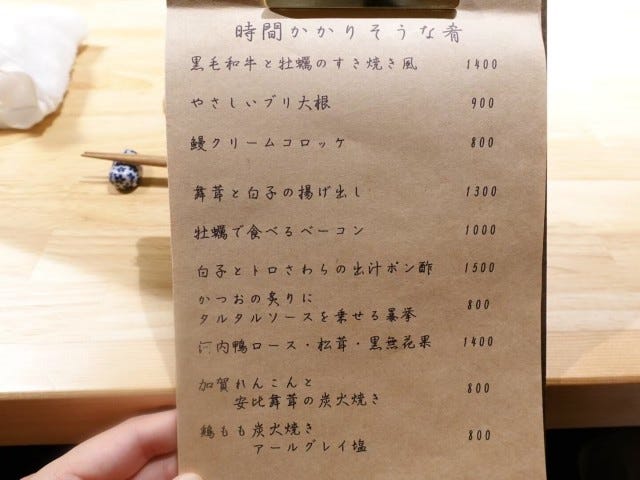 時間かかりそうな肴
黒毛和牛と牡蠣のすき焼き風 1400
やさしいブリ大根 900
鰻クリームコロッケ 800
舞茸と白子の揚げ出し 1300
牡蠣で食べるベーコン 1000
白子とトロさわらの出汁ポン酢 1500
かつおの炙りに
タルタルソースを乗せる暴挙 800
河内鴨ロース・松茸・黒無花果 1400
加賀れんこんと
安比舞茸の炭火焼き 800
鶏もも炭火焼き
アールグレイ塩 800